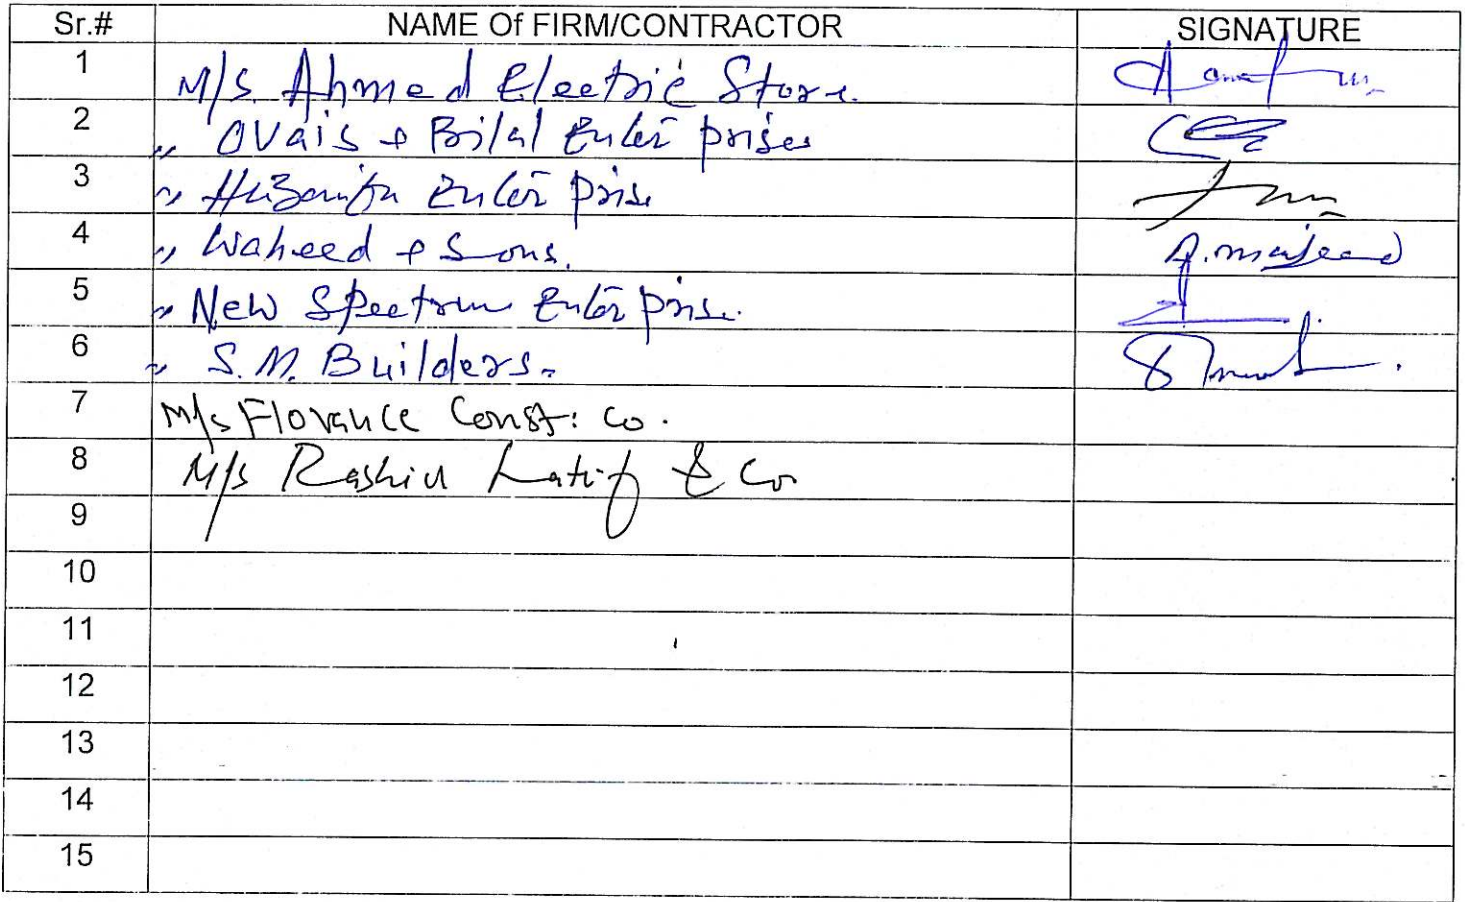 Sr.# NAME Of FIRM/CONTRACTOR SIGNATURE
1 M/S. Ahmed Electric Store.
2 " Ovais & Bilal Enterprises
3 " Huzaifa Enterprise
4 " Waheed & Sons. A. majeed
5 " New Spectrum Enterprise.
6 " S.M. Builders.
7 M/s Florance Const: Co.
8 M/s Rashid Latif & Co
9
10
11
12
13
14
15